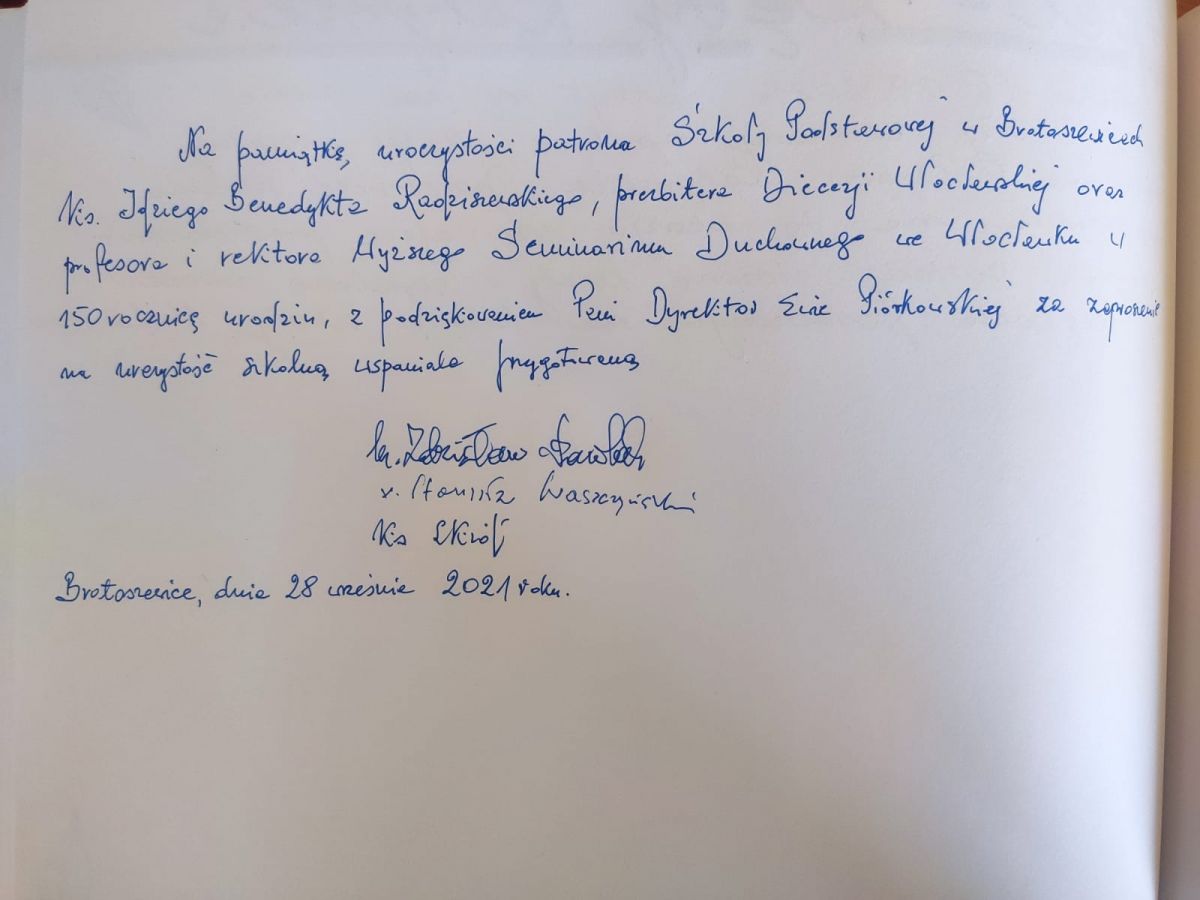 Na pamiątkę, uroczystości patrona Szkoły Podstawowej w Bratoszewicach
Ks. Idziego Benedykta Radziszewskiego, prezbitera Diecezji Włocławskiej oraz
profesora i rektora Wyższego Seminarium Duchownego we Włocławku w
150 rocznicę urodzin, z podziękowaniem Pani Dyrektor Piórkowskiej za zaproszenie
na uroczystość szkolną wspaniale przygotowaną
ks. Zdzisław Pawlak
x. Waszczyński
Ks
Bratoszewice, dnia 28 wrześnie 2021 roku.